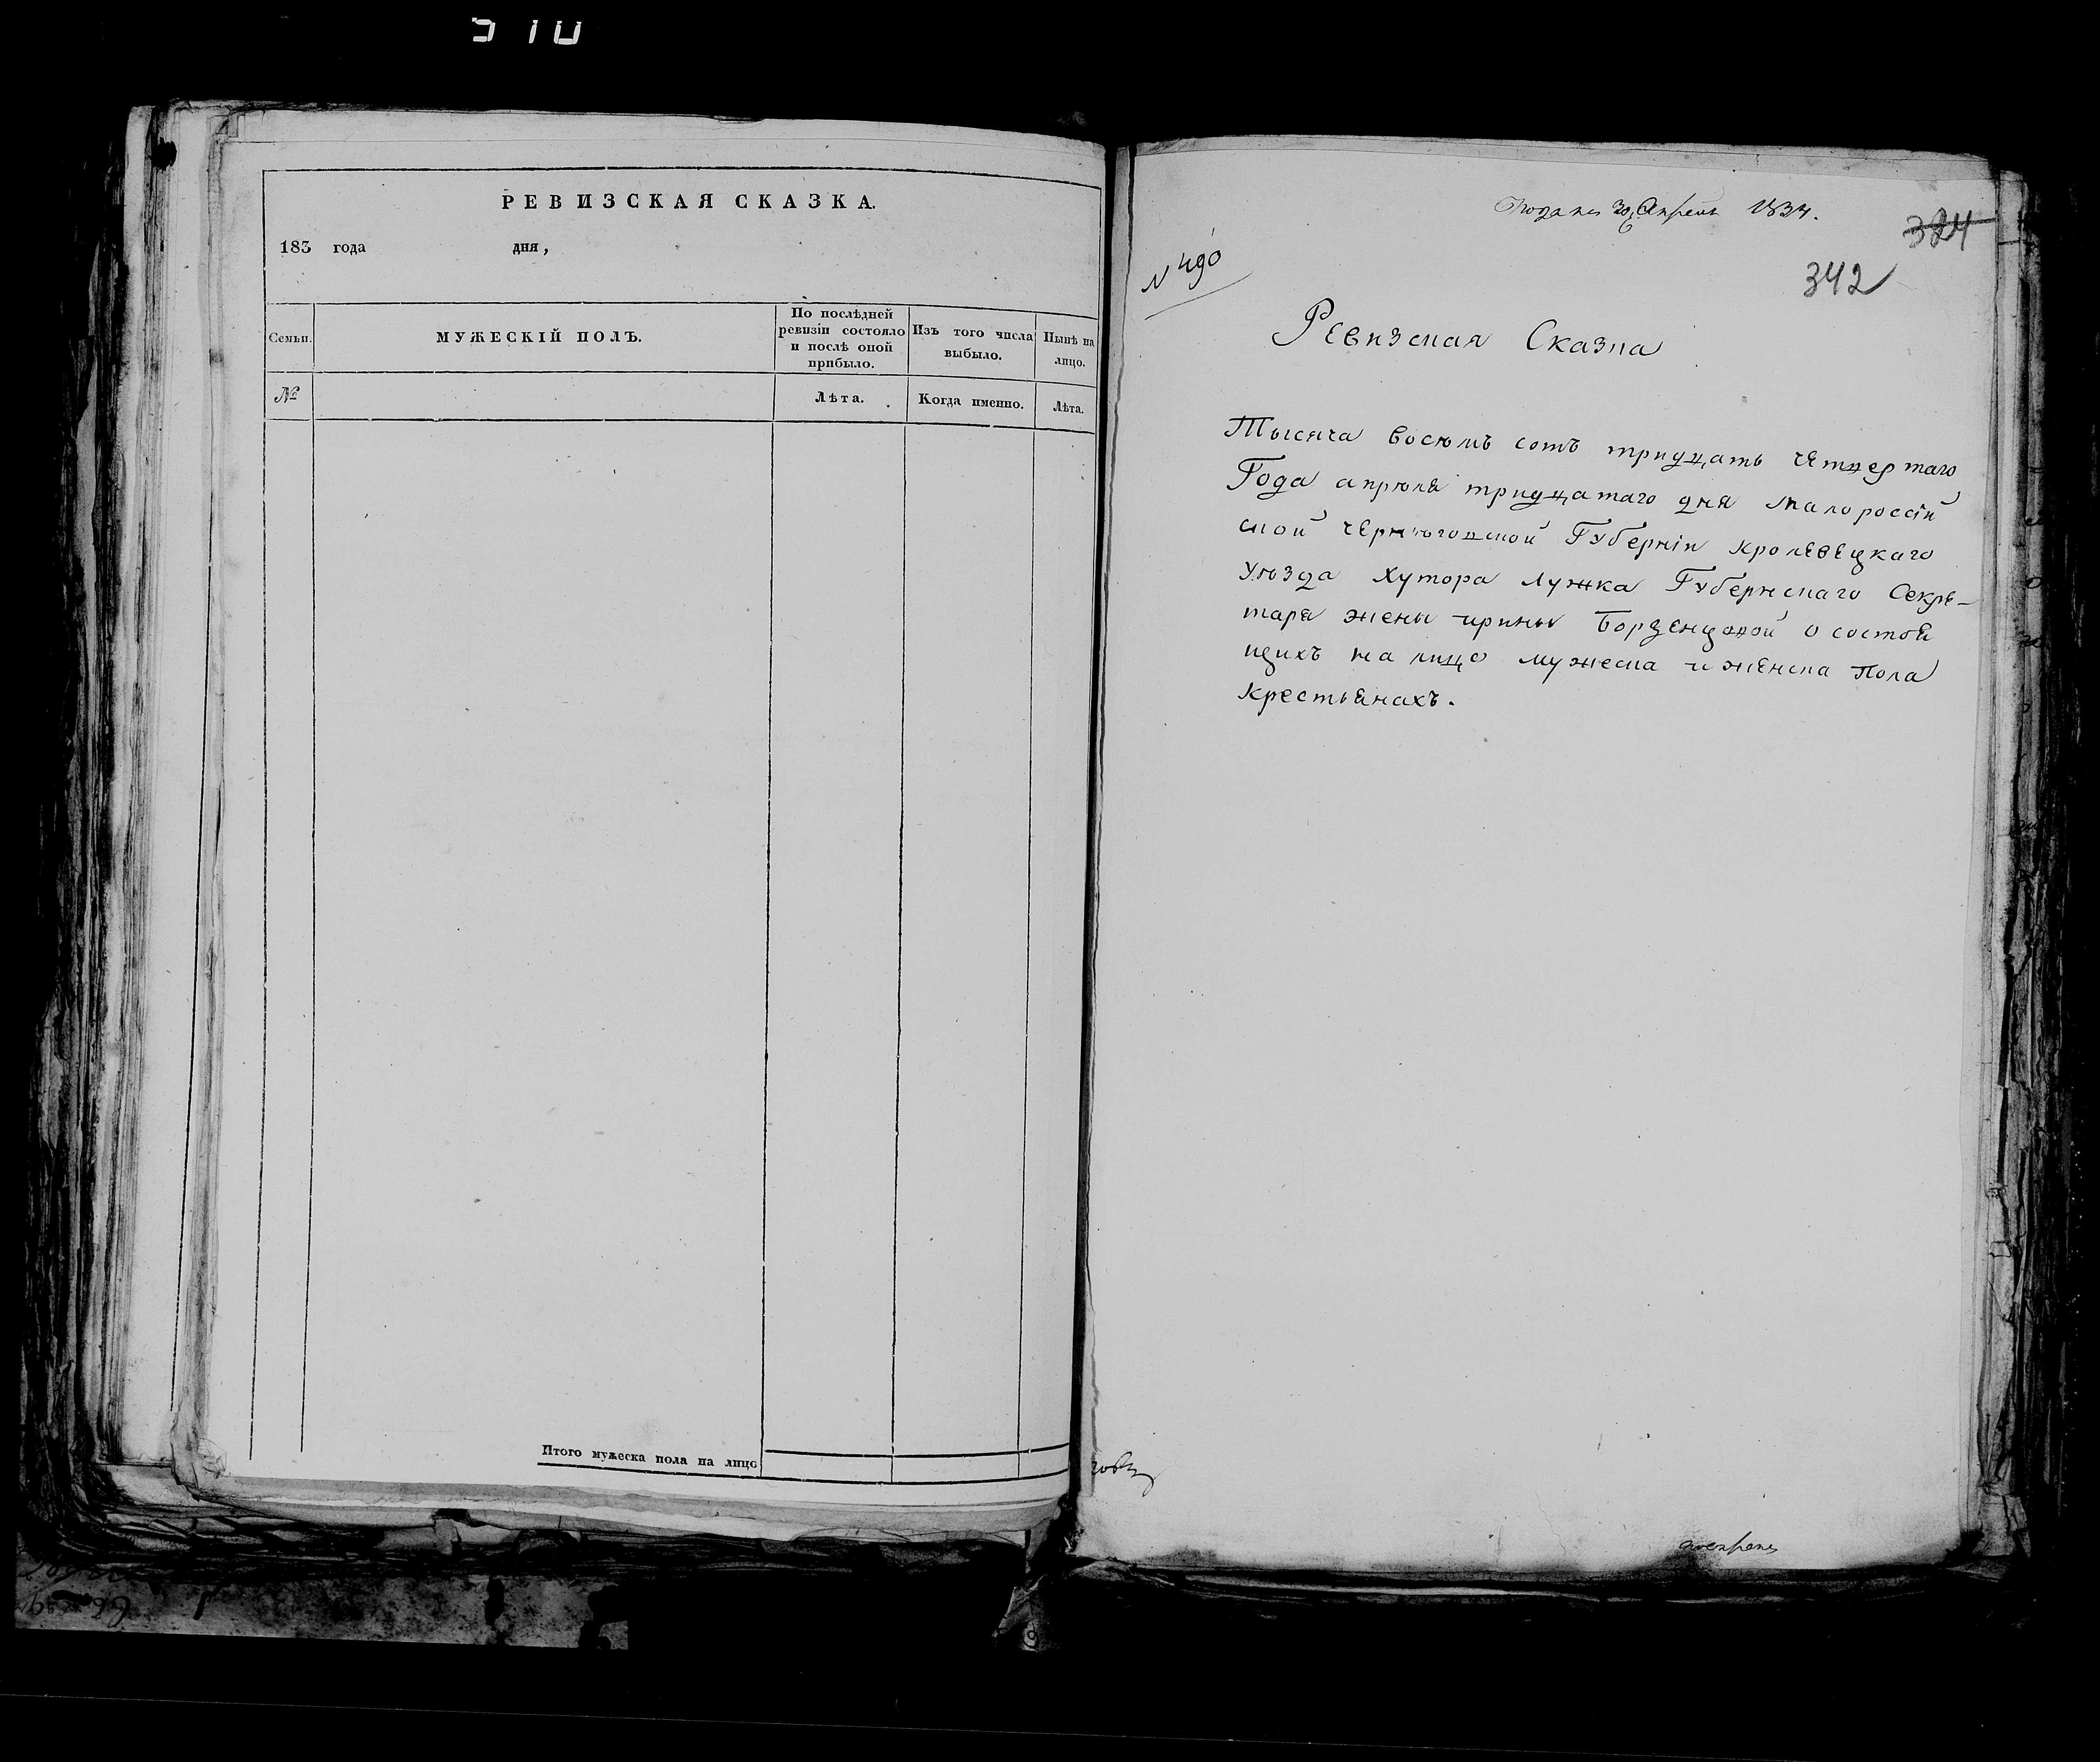 РЕВИЗСКАЯ СКАЗКА.
183 года дня,
Семьи.
МУЖЕСКІЙ ПОЛЪ.
По послѣдней
ревизіи состояло
и послѣ оной
прибыло.
Изъ того числа
выбыло.
Нынѣ на
лицо.
№
Лѣта.
Когда именно.
Лѣта.
Итого мужеска пола на лицо
Подана 30 Апреля 1834.
324
N 490
342
Ревизская Сказка
Тысяча восюмъ сотъ тридцать четвертаго
Года апрюля тридцатаго дня малороссій
ской черниговской Губерніи кролевецкаго
уюзда хутора лужка Губернскаго Секре-
таря жены ирины Борзенцовой о состоя
щихъ на лицо мужеска и женска пола
крестьянахъ.